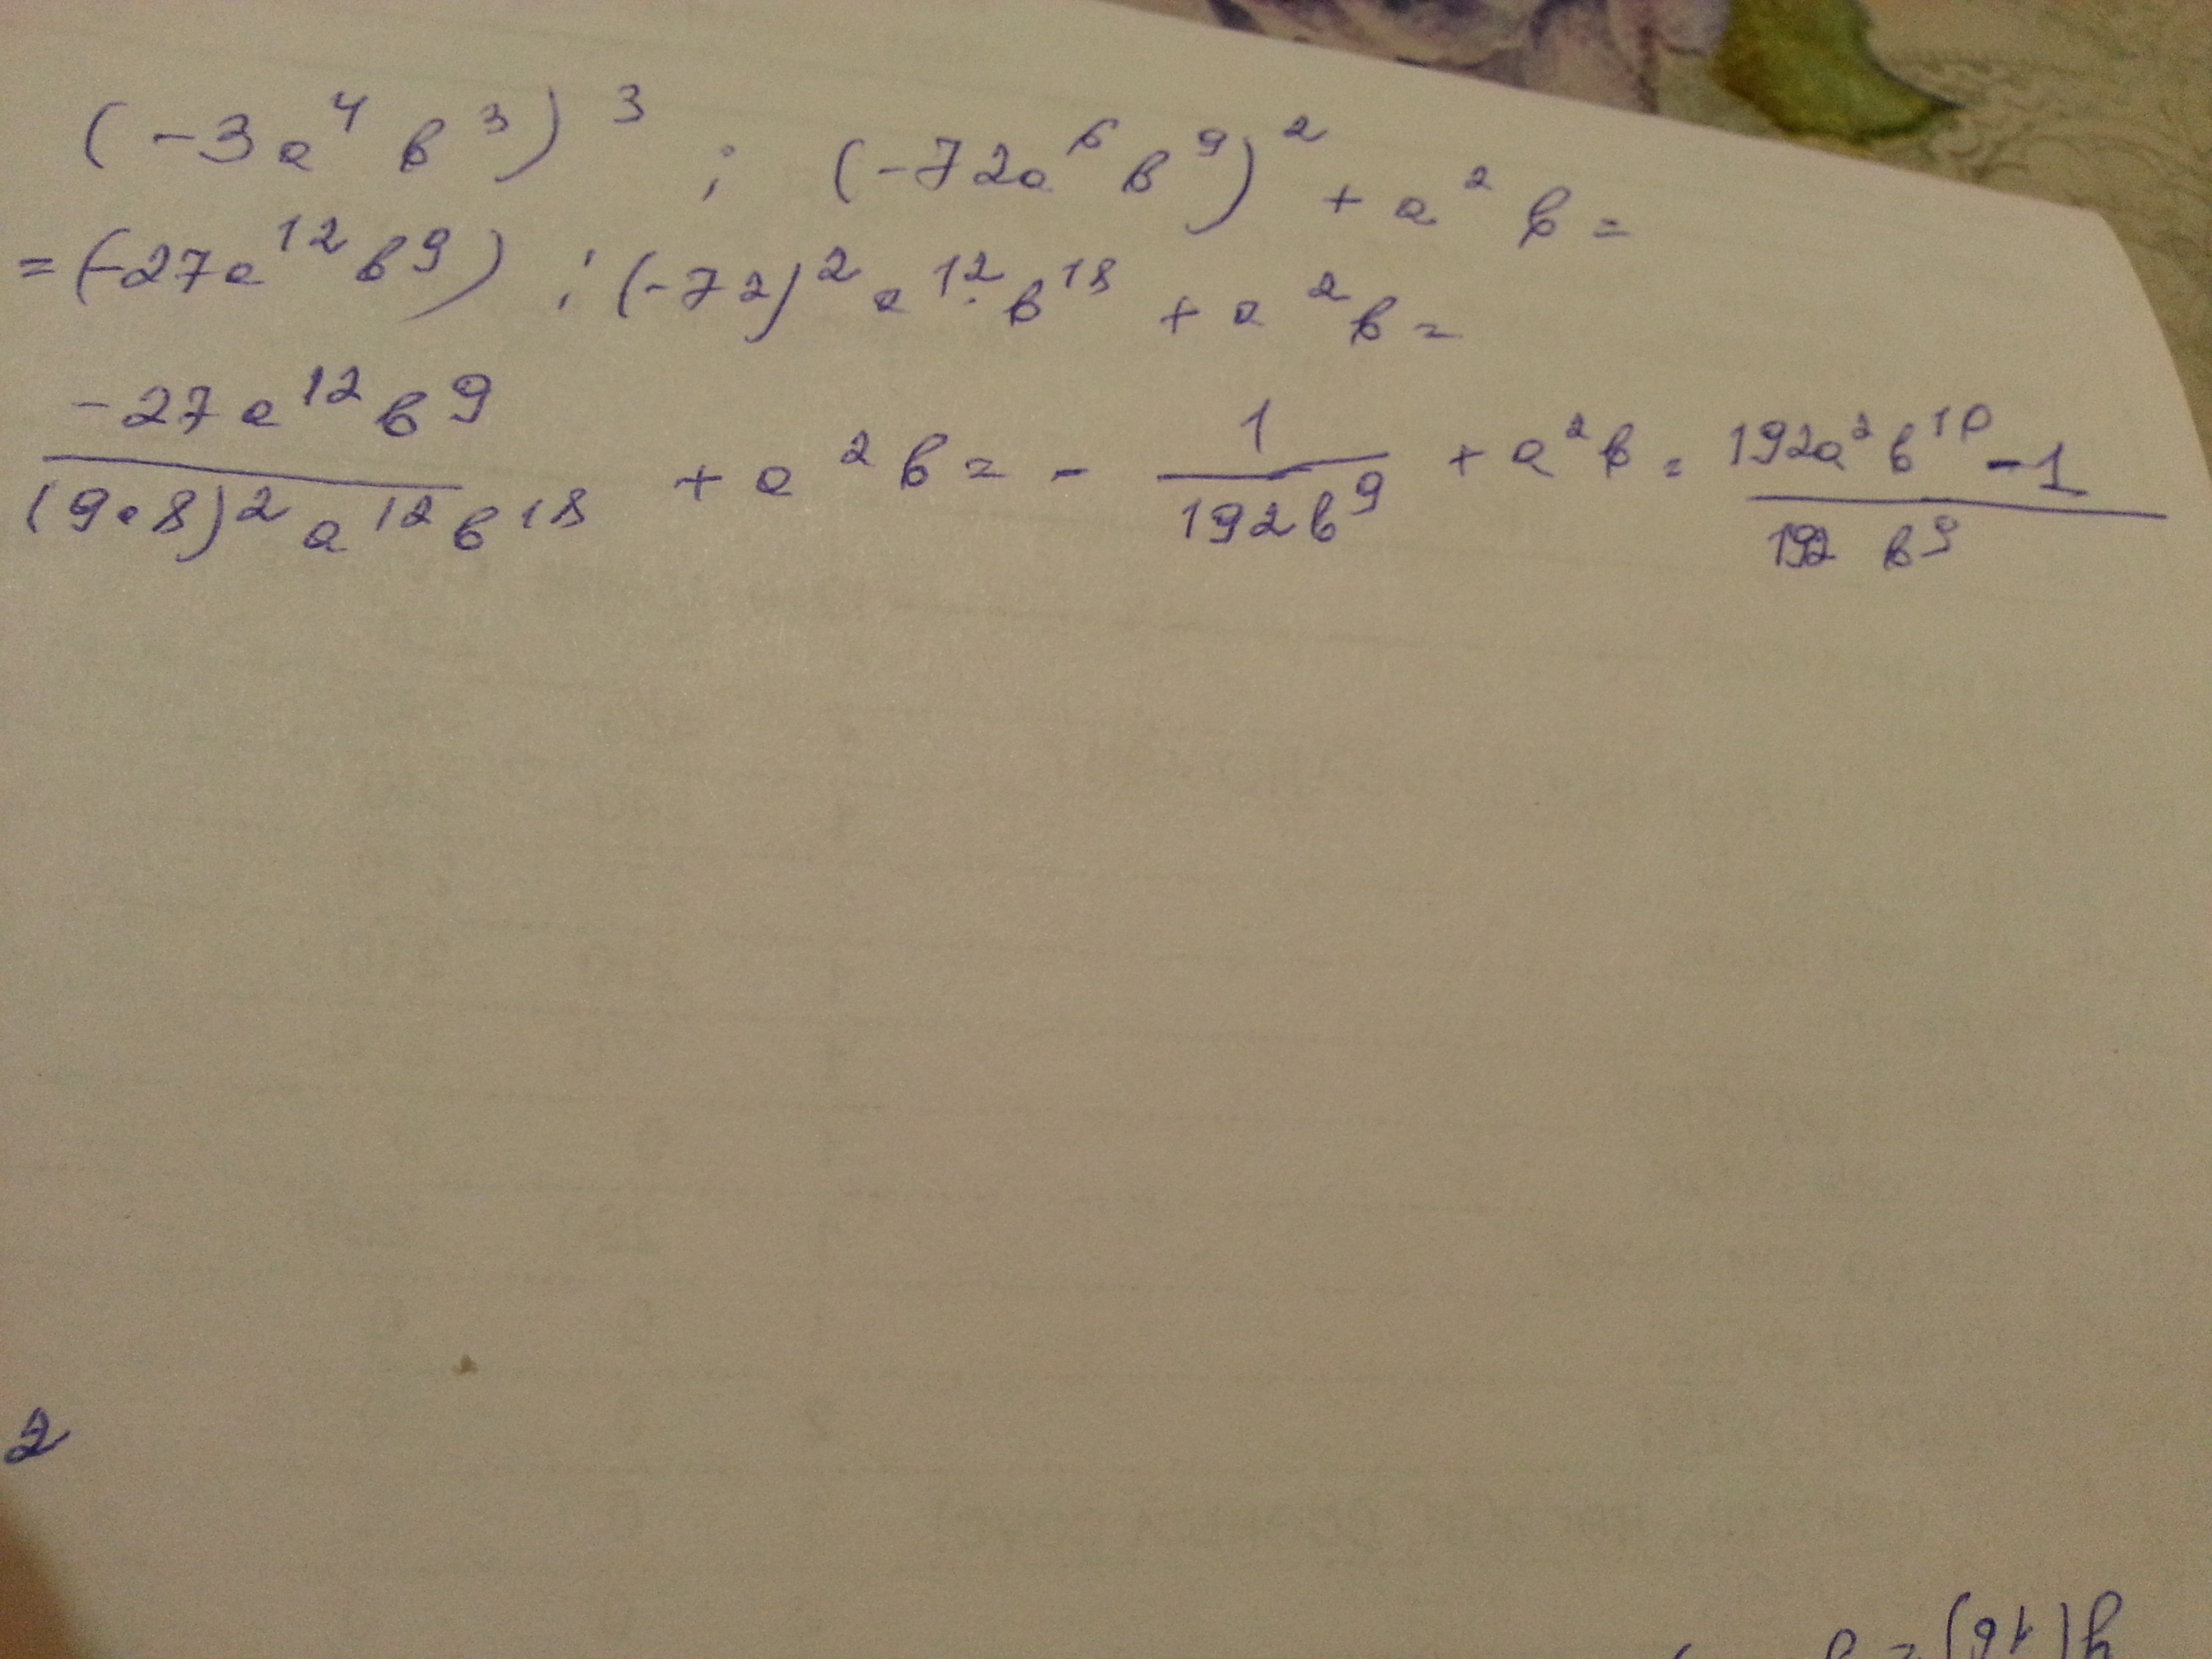 (-3a⁴b³)³ : (-72a⁶b⁹)² + a²b =
= (-27a¹²b⁹) : (-72)²a¹²·b¹⁸ + a²b =
-27a¹²b⁹/(9·8)²a¹²b¹⁸ + a²b = - 1/192b⁹ + a²b = 192a²b¹⁰-1/192b⁹
2
y(16) =